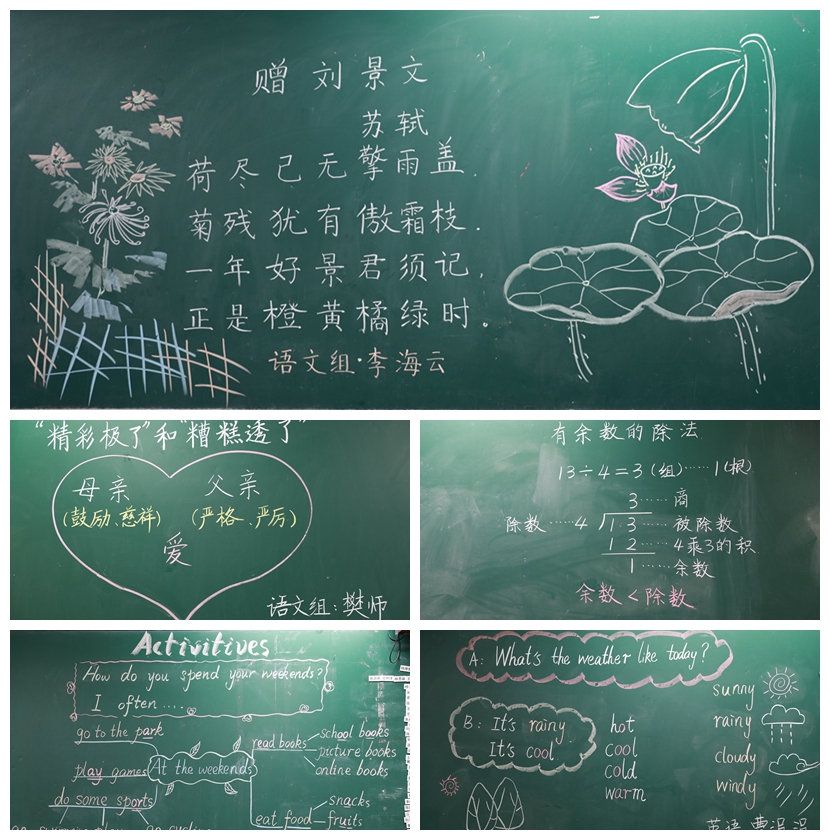 赠刘景文
苏轼
荷尽已无擎雨盖
菊残犹有傲霜枝.
一年好景君须记,
正是橙黄橘绿时。
语文组·李海云
“精彩极了”和“糟糕透了”
母亲 父亲
(鼓励、慈祥) (严格、严厉)
爱
语文组:樊师
有余数的除法
13÷4=3(组)······1(根)
3······商
除数······4 13······被除数
12······4乘3的积
1······余数
余数<除数
Activitives
How do you spend your weekends?
I often....
go to the park
play games
do some sports
At the weekends
read books
school books
picture books
online books
eat food
snacks
fruits
go cycling
A: What's the weather like today?
B: It's rainy
It's cool
hot
cool
cold
warm
sunny
rainy
cloudy
windy
英语